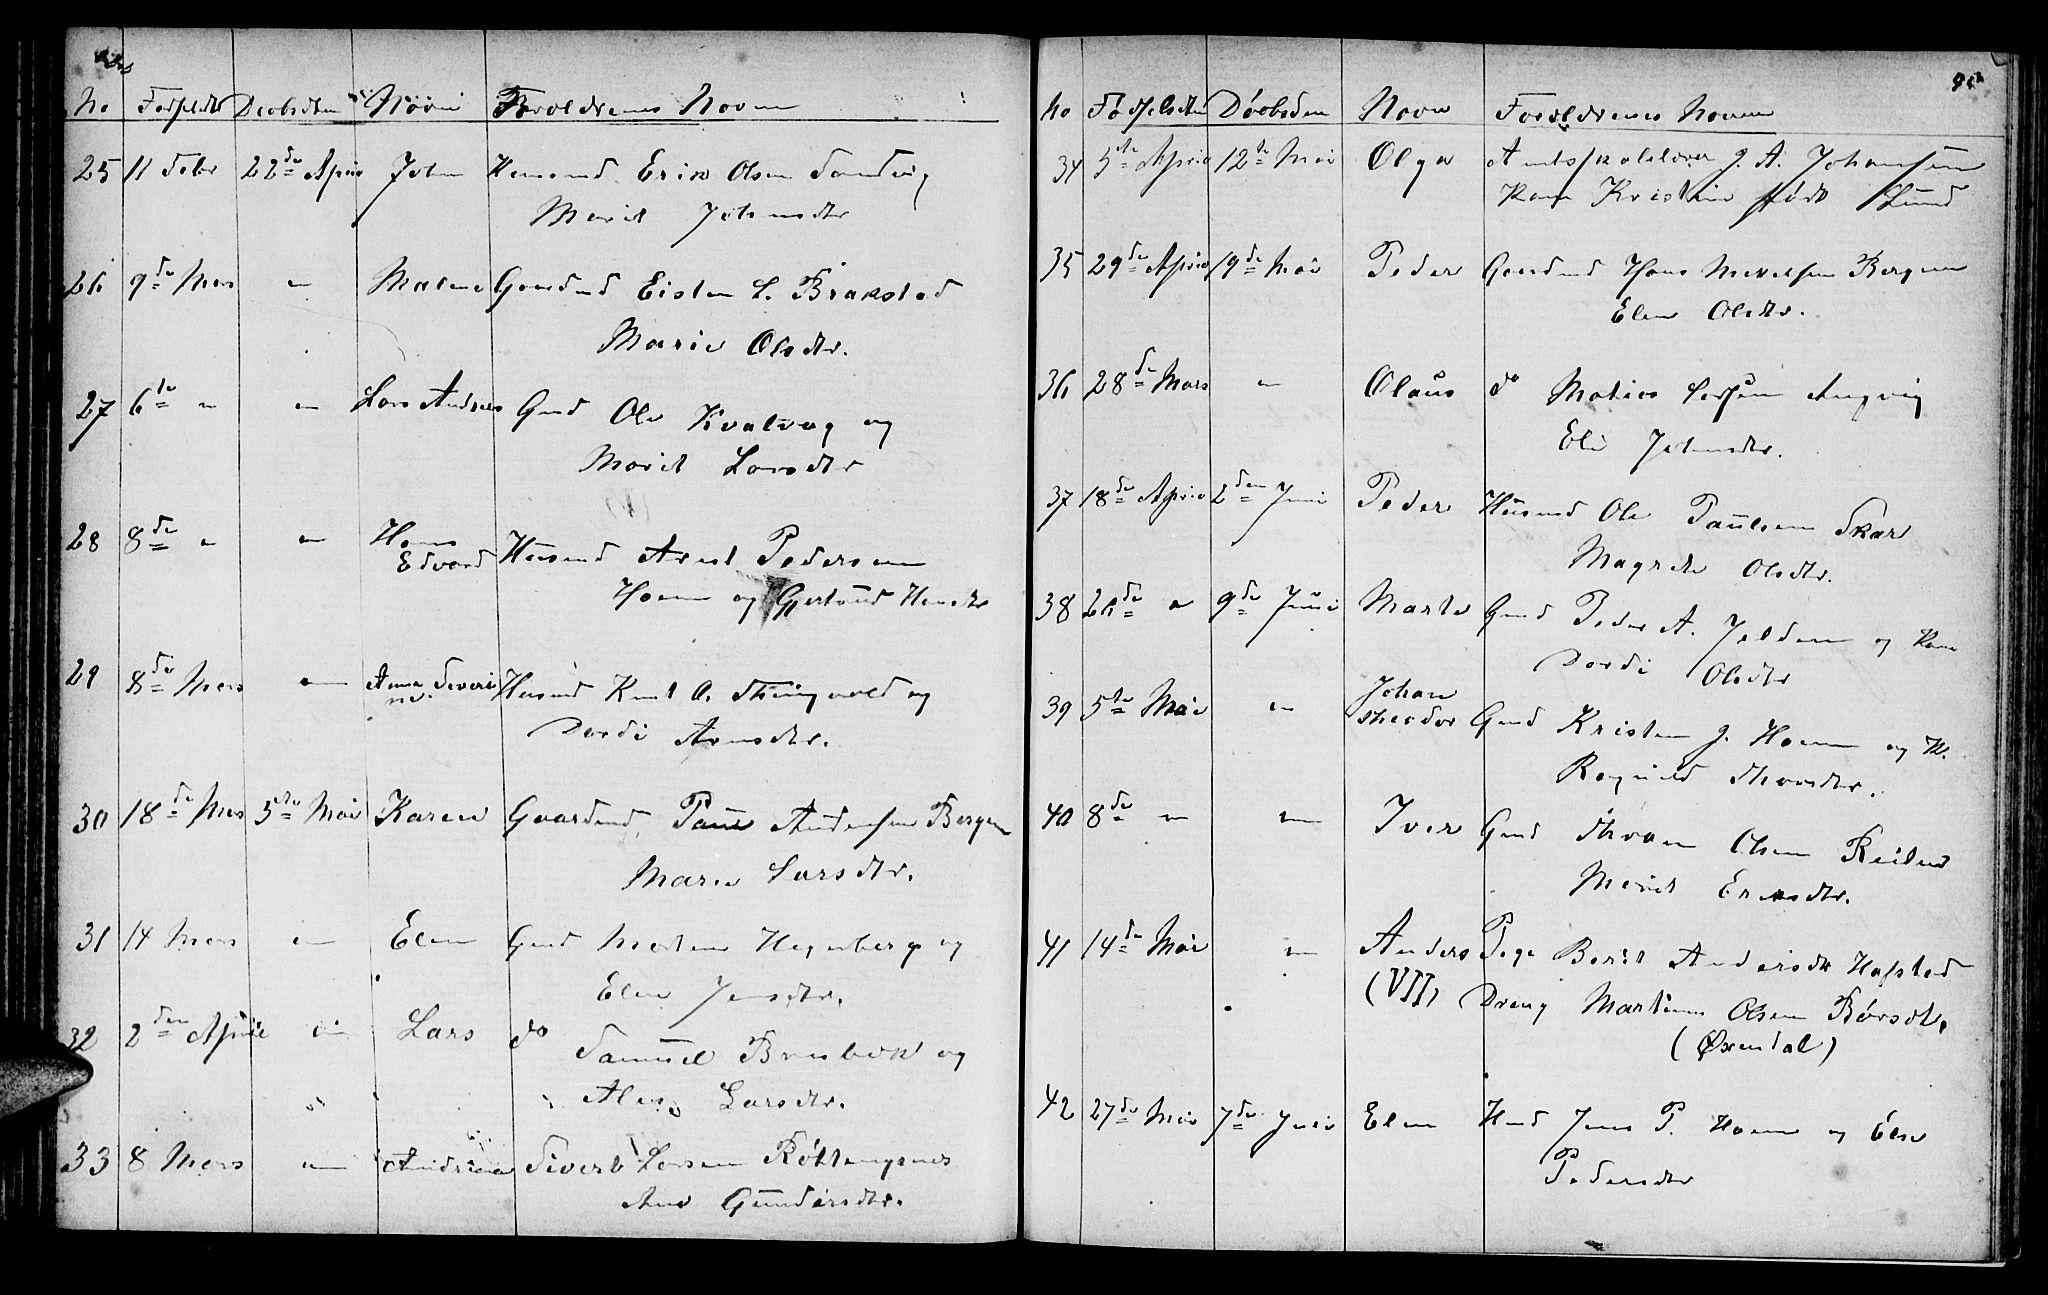 No Fødselsdt Døbsdten Navn Forældrenes Navne
25 11 Febr 22de April John Husmd Erik Olsen Sandvig
Marit Johnsdtr
26 9de Mars " Malene Gaardmd Eisten L. Brakstad
Marie Olsdtr.
27 6te " " Lars Andreas Gmd Ole Kvalvag og
Marit Larsdtr
28 8de " " Hans Husmd Arnt Pedersen
Edvard
Hoem og Gjertrud Hansdtr
29 8de Mars " Anna Severi Husmd Knut A. Thingvold og
ne
Dordi Arnsdtr.
30 18de Mars 5te Mai Karen Gaardmd Paul Andersen Bergem
Maren Larsdtr.
31 14 Mars " Elen Gmd Morten Hegerberg og
Elen Jensdtr.
32 2den April " Lars do Samuel Bresbøk og
Larsdtr.
33 8 Mars " Andrina Sivert Larsen
Ane Gundersdtr.
95
No Fødselsdten Døbsdten Navn Forældrenes Navne
34 5te April 12te Mai Olga Amtsskolelærer J. A. Johansen
Kone Kristine født Lund
35 29de April 19de Mai Peder Gaardmd Hans Bergem
Elen Olsdtr.
36 28de Mars " Olaus do Matias Larsen Angvig
Eli Johnsdtr.
37 18de April 2den Juni Peder Husmd Ole Paulsen Skar
Magrete Olsdtr.
38 26de " 9de Juni Marte Gmd Peder A. Jeldem og Kone
Dordi Olsdtr
39 5te Mai " Johan Gmd Kristen J. Hoem og K.
Theodor
Ragnild Thorsdtr.
40 8de " " Iver Gmd Thron Olsen Reiten
Marit Eriksdtr.
41 14de Mai " Anders Pige Berit Andersdtr Hafstad
(VII) Dreng Martinus Olsen
(Øxendal)
42 27de Mai 7de Juli Elen Hmd Jens P. Hoem og Else
Pedersdtr